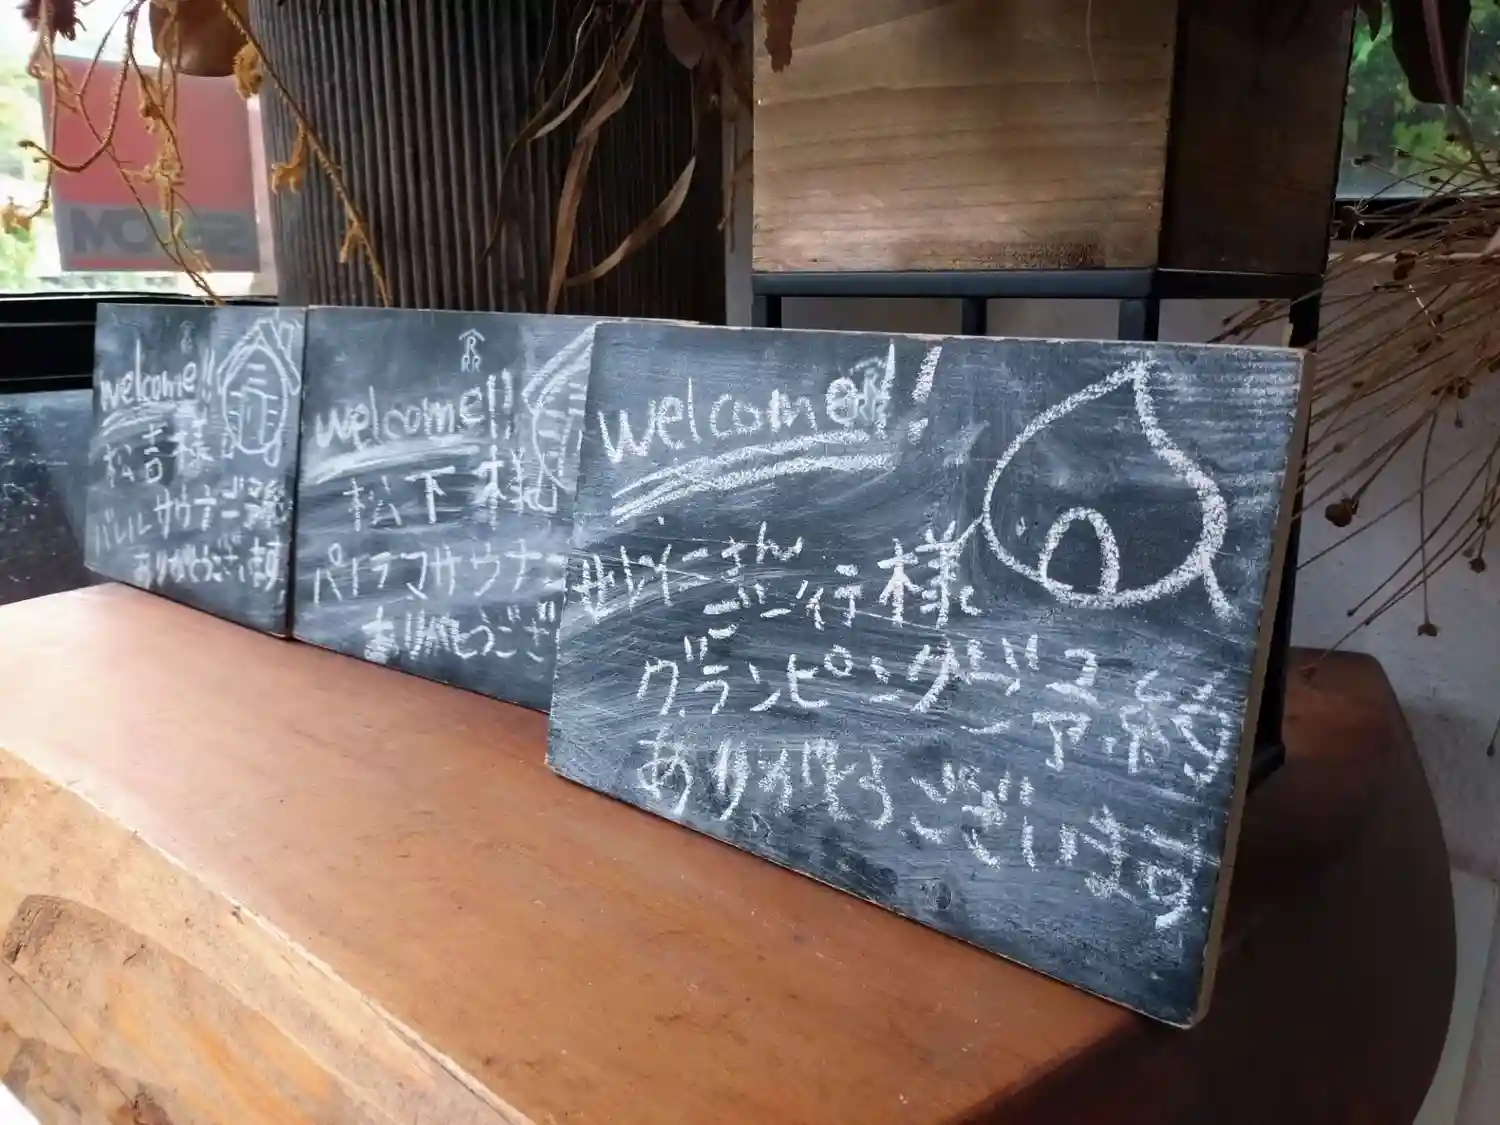 welcome!!
松吉様
バレルサウナご予約
ありがとうございます
welcome!!
松下様
パノラマサウナ
ありがとうござ
welcome!!
セレイーさん
ご一行様
グランピングご予約
ありがとうございます